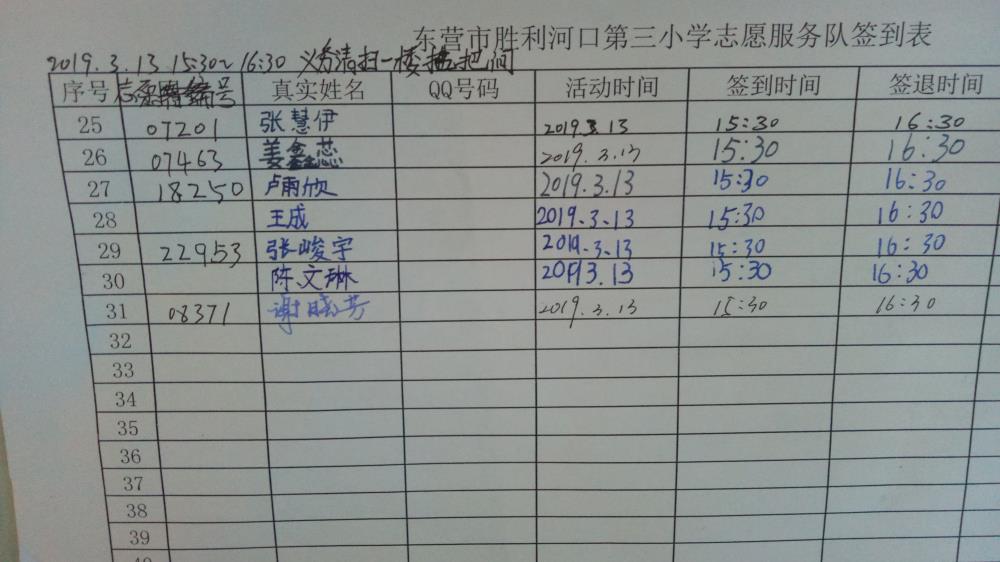 东营市胜利河口第三小学志愿服务队签到表
2019.3.13 15:30~16:30 义务清扫一楼拖把间
序号 志愿者编号 真实姓名 QQ号码 活动时间 签到时间 签退时间
25 07201 张慧伊 2019.3.13 15:30 16:30
26 07463 姜鑫蕊 2019.3.13 15:30 16:30
27 18250 卢雨欣 2019.3.13 15:30 16:30
28 王成 2019.3.13 15:30 16:30
29 22953 张峻宇 2019.3.13 15:30 16:30
30 陈文琳 2019.3.13 15:30 16:30
31 08371 谢晓芳 2019.3.13 15:30 16:30
32
33
34
35
36
37
38
39